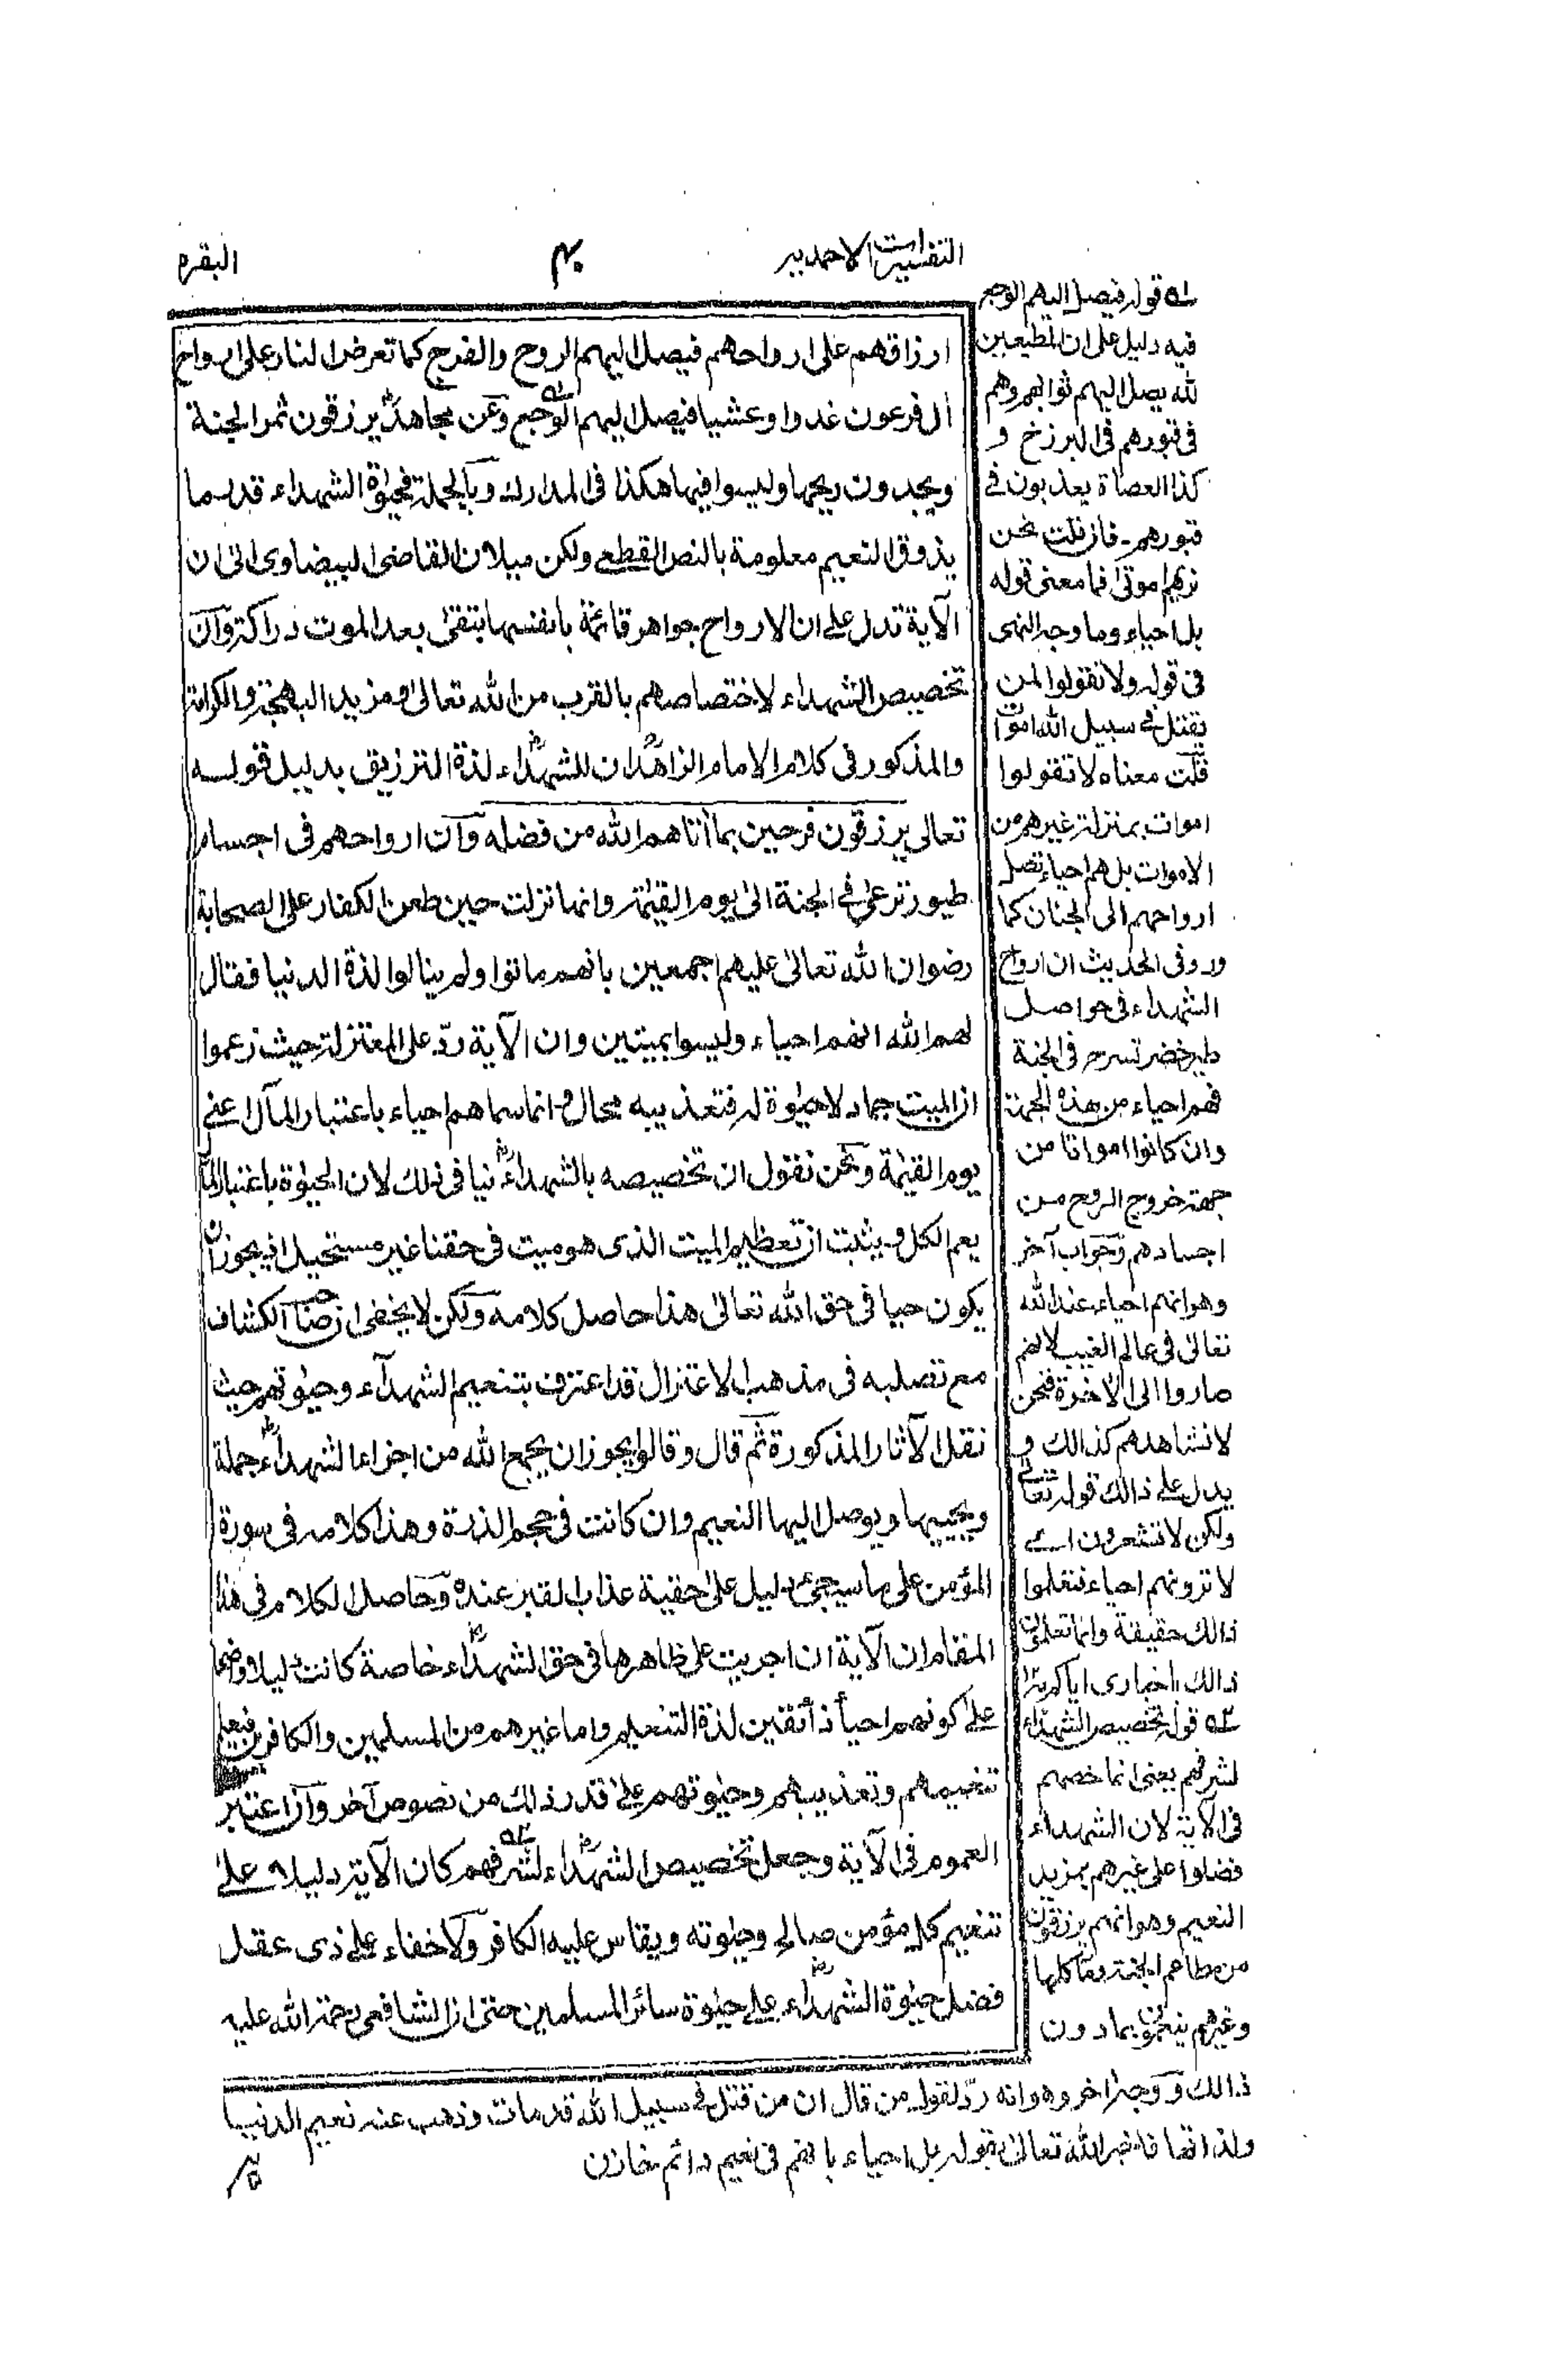 التفسيرات الاحمدية
۴۰
البقرة
ارزاقهم على ارواحهم فيصل اليهم الروح والفرح كما تعرض النار على ارواح
أل فرعون غدوا وعشيا فيصل اليهم الوجع وعن مجاهد يرزقون ثمر الجنة
ويجدون ريحها وليسوا فيها هكذا فى المدارك وبالجملة فحيٰوة الشهداء قدر ما
يذوق النعيم معلومة بالنص القطعے ولكن ميلان القاضى البيضاوى الى ان
الآية تدل علے ان الارواح جواهر قائمة بانفسها تبقىٰ بعد الموت دراكة وان
تخصيص الشهداء لاختصاصهم بالقرب من الله تعالىٰ ومزيد البهجة والكرامة
والمذكور فى كلام الامام الزاهد ان للشهداء لذة الترزيق بدليل قوله
تعالى يرزقون فرحين بما أتاهم الله من فضله وان ارواحهم فى اجسام
طيور ترعىٰ فے الجنة الىٰ يوم القيٰمة وانها نزلت حين طعن الكفار على الصحابة
رضوان الله تعالىٰ عليهم اجمعين بانهم ماتوا ولم ينالوا لذة الدنيا فقال
لهم الله انهم احياء وليسوا بميتين وان الآية ردّ على المعتزلة حيث زعموا
ان الميت جماد لا حيٰوة له فتعذيبه محال و انما سماهم احياء باعتبار المآل اعنے
يوم القيٰمة ونحن نقول ان تخصيصه بالشهداء ينافى ذلك لان الحيٰوة باعتبار المآل
يعم الكل و يثبت ان تعظيم الميت الذى هو ميت فى حقنا غير مستحيل اذ يجوز ان
يكون حيا فى حق الله تعالىٰ هذا حاصل كلامه ولكن لا يخفى ان صاحب الكشاف
مع تصلبه فى مذهب الاعتزال قد اعترف بتنعيم الشهدآء وحيٰوتهم حيث
نقل الآثار المذكورة ثم قال وقالوا يجوز ان يجمع الله من اجزاء الشهداء جملة
ويحييها ويوصل اليها النعيم وان كانت فى حجم الذرة وهذا كلامه فى سورة
المؤمن على ما سيجئ دليل علىٰ حقية عذاب القبر عنده وحاصل الكلام فى هذا
المقام ان الآية ان اجريت على ظاهرها فى حق الشهداء خاصة كانت دليلا واضحا
علے كونهم احيأ ذأئقين لذة التنعيم واما غيرهم من المسلمين والكافرين فيعلم
تنعيمهم وتعذيبهم وحيٰوتهم علىٰ قدر ذلك من نصوص آخر وان اعتبر
العموم فى الآية وجعل تخصيص الشهداء لشرفهم كان الآية دليلا علےٰ
تنعيم كل مؤمن صالح وحيٰوته ويقاس عليه الكافر ولا خفاء علے ذى عقل
فضل حيٰوة الشهداء علے حيٰوة سائر المسلمين حتى ان الشافعى رحمة الله عليه
له قوله فيصل اليهم الوجع
فيه دليل على ان المطيعين
لله يصل اليهم ثوابهم وهم
فى قبورهم فى البرزخ و
كذا العصاة يعذبون فے
قبورهم - فان قلت نحن
نريهم اموتى فما معنى قوله
بل احياء وما وجه النهى
فى قوله ولا تقولوا لمن
يقتل فے سبيل الله اموات
قلت معناه لا تقولوا
اموات بمنزلة غيرهم من
الاموات بل هم احياء تصل
ارواحهم الى الجنان كما
ورد فى الحديث ان ارواح
الشهداء فى حواصل
طير خضر تسرح فى الجنة
فهم احياء من هذه الجهة
وان كانوا امواتا من
جهة خروج الروح من
اجسادهم وجواب آخر
وهو انهم احياء عند الله
تعالىٰ فى عالم الغيب لانهم
صاروا الى الآخرة فنحن
لا نشاهدهم كذالك و
يدل علے ذالك قوله تعالےٰ
ولكن لا تشعرون اے
لا ترونهم احياء فتعلموا
ذالك حقيقة وانما تعلمون
ذالك باخبارى اياكم به
۲ه قوله تخصيص الشهداء
لشرفهم يعنى انما خصهم
فى الآية لان الشهداء
فضلوا على غيرهم بمزيد
النعيم وهو انهم يرزقون
من مطاعم الجنة ومآكلها
وغيرهم ينعمون بما دون
ذالك و وجه اخر وهو انه ردّ لقول من قال ان من قتل فے سبيل الله قد مات وذهب عنه نعيم الدنيا
ولذاتها فاخبر الله تعالىٰ بقوله بل احياء بانهم فى نعيم دائم